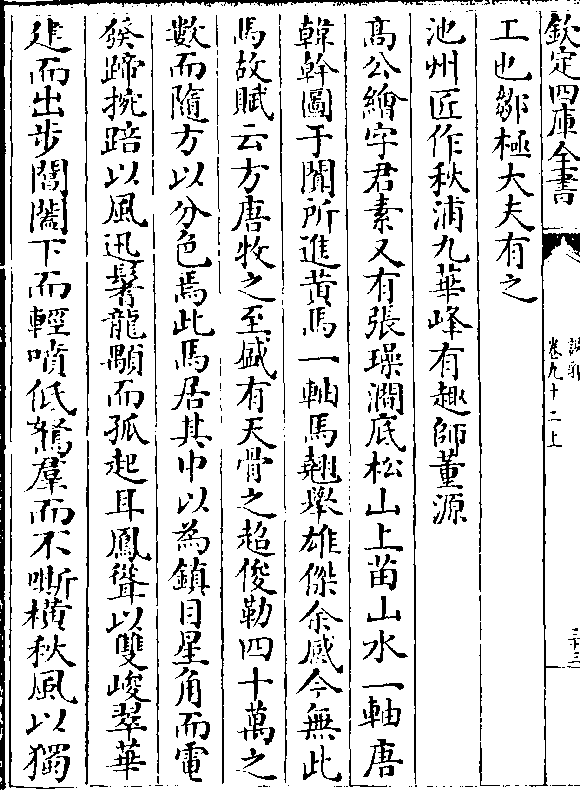 欽定四庫全書
說郛
卷九十二上
二十三
工也鄒極大夫有之
池州匠作秋浦九華峰有趣師董源
髙公繪字君素又有張璪澗底松山上苗山水一軸唐
韓幹圖于闐所進黄馬一軸馬翹舉雄傑余感今無此
馬故賦云方唐牧之至盛有天骨之超俊勒四十萬之
數而隨方以分色焉此馬居其中以為鎮目星角而電
發蹄捥踣以風迅鬐龍顒而孤起耳鳳聳以雙峻翠華
建而出步閶闔下而輕噴低駑羣而不嘶橫秋風以獨